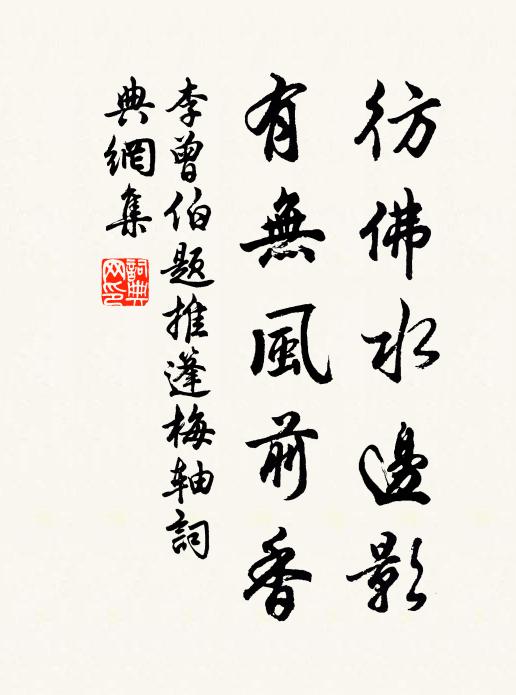 彷佛水邊影
有無風前香
李曾伯題推篷梅轴詞
典網集
詞典
网印